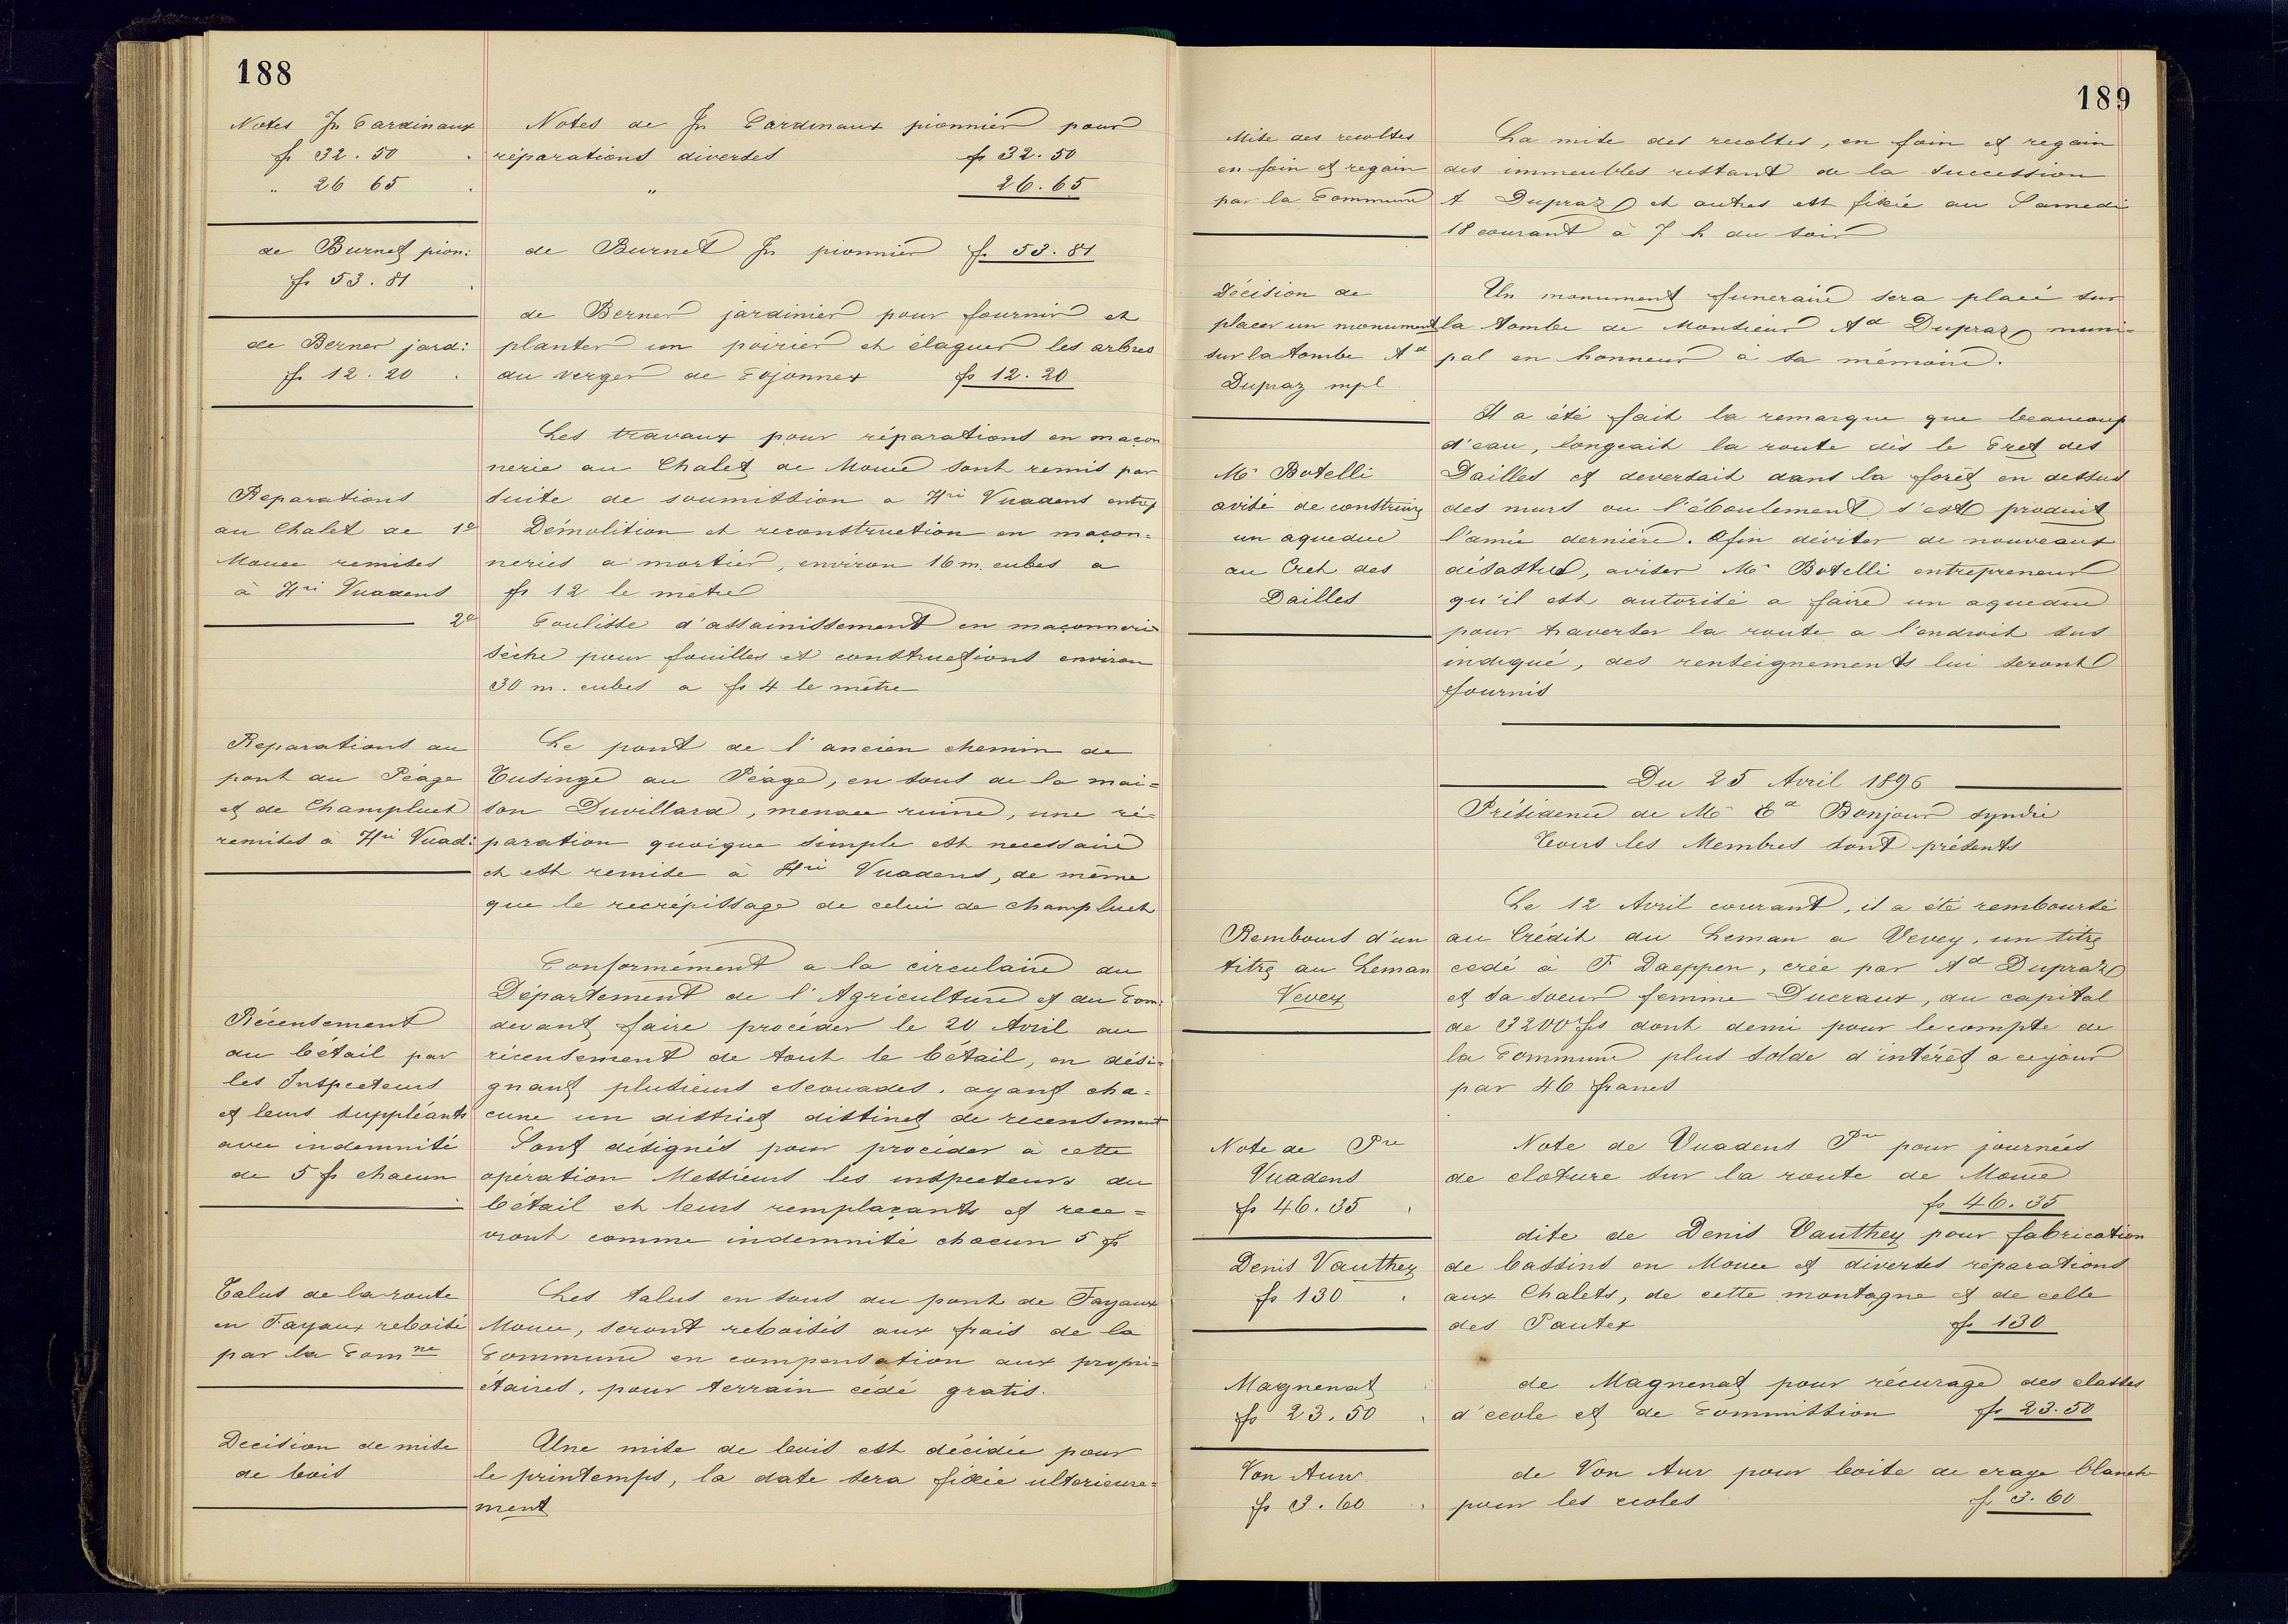 188
Notes Jn Cardinaux
fr 32.50
" 26 65
de Burnet pion:
fr 53.81
de Berner jard:
fr 12.20
Reparations
au Chalet de
Mouee remises
à Hri Vuadens
Reparations au
pont du Péage
et de Champluet
remises à Hri Vuad:
Récensement
du bétail par
les Inspecteurs
et leurs suppléants
avec indemnité
de 5 fr chacun
Talus de la route
en Fayaux reboisé
par la Comne
Decision de mise
de bois
Notes de Jn Cardinaux pionnier pour
réparations diverses fr 32.50
" 26.65
de Burnet Jn pionnier fr 53.81
de Berner jardinier pour fournir et
planter un poirier et élaguer les arbres
du verger de Cojonnex fr 12.20
Les travaux pour réparations en maçon
nerie au Chalet de Mouee sont remis par
suite de soumission a Hri Vuadens entrep
1o Démolition et reconstruction en maçon=
neries a mortier, environ 16 m. cubes a
fr 12 le mètre
2o Coulisse d'assainissement en maçonnerie
sèche pour fouilles et constructions environ
30 m. cubes a fr 4 le mètre
Le pont de l'ancien chemin de
Cusinge au Péage, en sous de la mai=
son Duvillard, menace ruine, une ré=
paration quoique simple est necessaire
et est remise à Hri Vuadens, de même
que le recrépissage de celui de Champluet
Conformément a la circulaire du
Département de l'Agriculture et du Com:
devant faire procéder le 20 Avril au
récensement de tout le bétail, en dési=
gnant plusieurs escouades, ayant cha=
cune un district distinct de recensement
Sont désignés pour procéder à cette
opération Messieurs les inspecteurs du
bétail et leurs remplaçants et rece=
vront comme indemnité chacun 5 fr
Les talus en sous du pont de Fayaux
Mouee, seront reboisés aux frais de la
Commune en compensation aux propri=
étaires, pour terrain cédé gratis.
Une mise de bois est décidée pour
le printemps, la date sera fixée ulterieure=
ment
189
Mise des recoltes
en foin et regain
par la Commune
Décision de
placer un monument
sur la tombe Ad
Dupraz mpl
Mr Botelli
avisé de construire
un aqueduc
au Cret des
Dailles
Rembours d'un
titre au Leman
Vevey
Note de Pre
Vuadens
fr 46.35
Denis Vauthey
fr 130
Magnenat
fr 23.50
Von Auw
fr 3.60
La mise des recoltes, en foin et regain
des immeubles restant de la succession
A Dupraz et autres est fixée au Samedi
18 courant à 7 h du soir
Un monument funeraire sera placé sur
la tombe de Monsieur Ad Dupraz muni=
pal en honneur à sa mémoire.
Il a été fait la remarque que beaucoup
d'eau, longeait la route dès le Cret des
Dailles et deversait dans la forêt en dessus
des murs ou l'éboulement s'est produit
l'année dernière. Afin déviter de nouveaux
désastres, aviser Mr Botelli entrepreneur
qu'il est autorisé a faire un aqueduc
pour traverser la route a l'endroit sus
indiqué, des renseignements lui seront
fournis
Du 25 Avril 1896
Présidence de Mr Ed Bonjour syndic
Tous les Membres sont présents
Le 12 Avril courant, il a été remboursé
au Crédit du Leman a Vevey, un titre
cedé à F. Daeppen, crée par Ad Dupraz
et sa soeur femme Ducraux, du capital
de 3200 frs dont demi pour le compte de
la Commune plus solde d'intérêt a ce jour
par 46 francs
Note de Vuadens Pre pour journées
de cloture sur la route de Mouee
fr 46.35
dite de Denis Vauthey pour fabrication
de bassins en Mouee et diverses réparations
aux Chalets, de cette montagne et de celle
des Pautex fr 130
de Magnenat pour récurage des classes
d'ecole et de Commission fr 23.50
de Von Auw pour boite de craye blanche
pour les ecoles fr 3.60